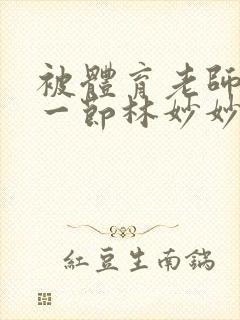 被體育老師
一節林妙妙
紅豆生南鍋